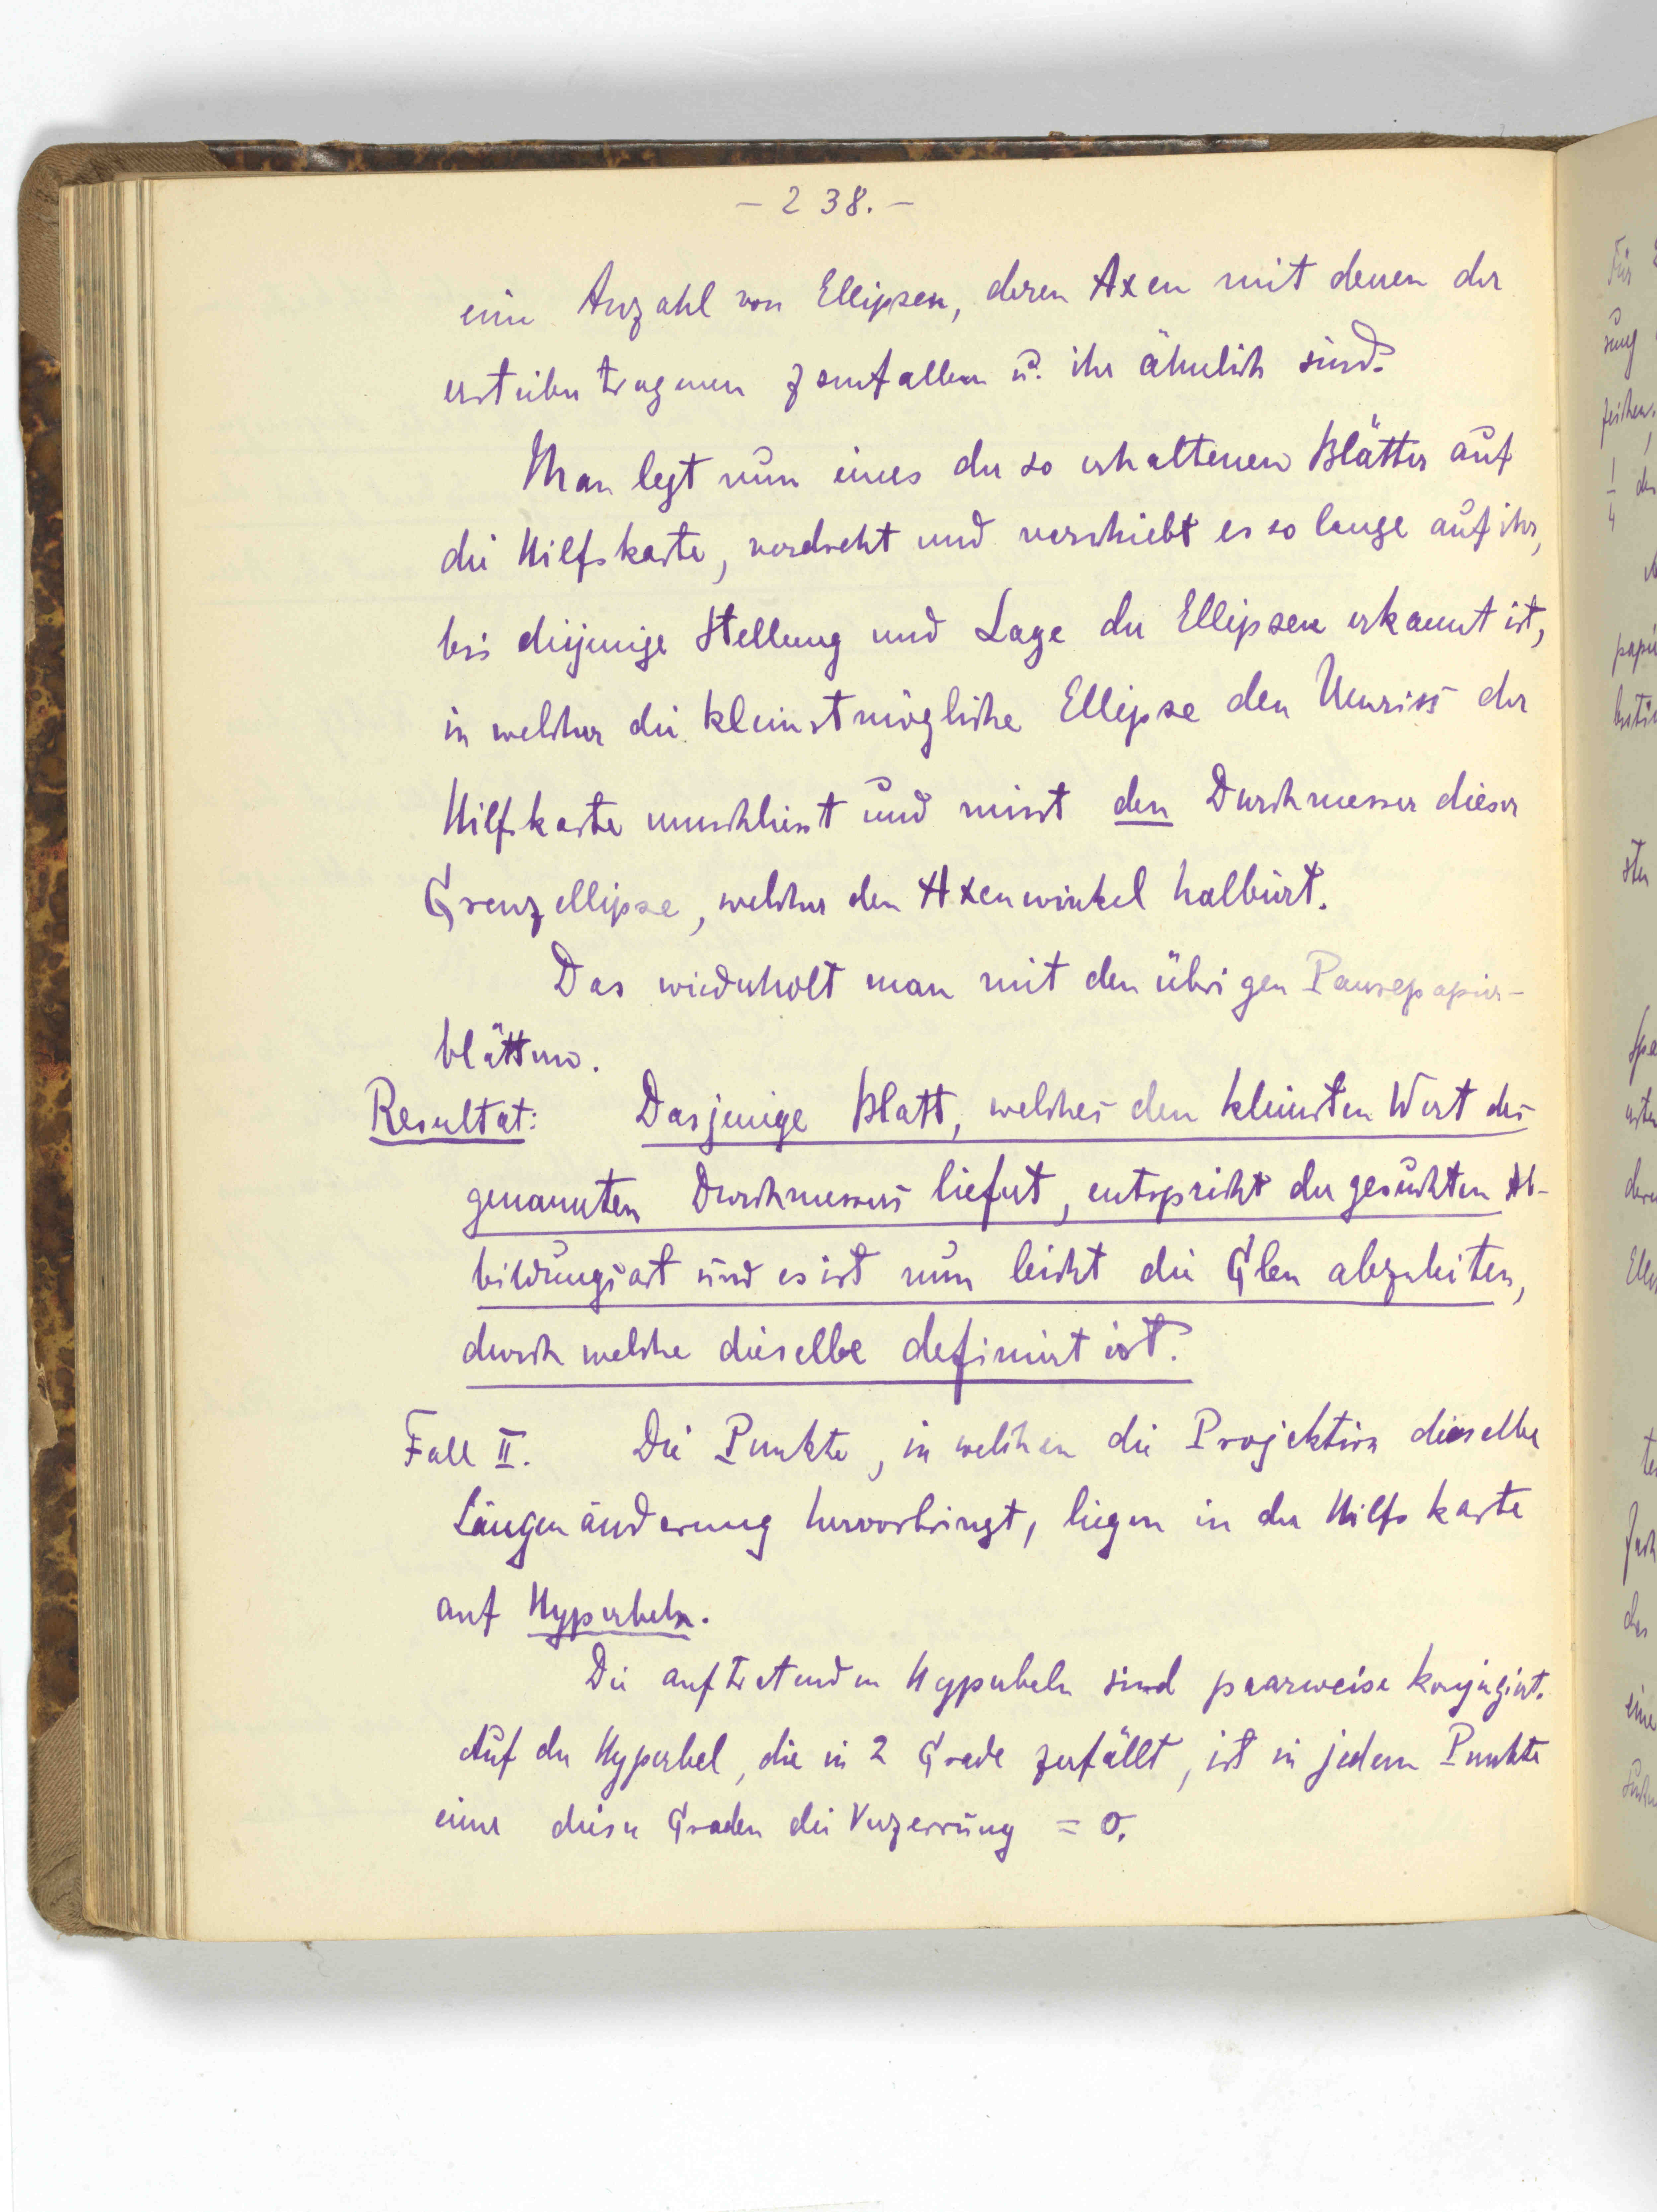 – 238. –
eine Anzahl von Ellipsen, deren Axen mit denen der
erstübertragenen zsmfallen u. ihr ähnlich sind.
Man legt nun eines der so erhaltenen Blätter auf
die Hilfskarte, verdreht und verschiebt es so lange auf ihr,
bis diejenige Stellung und Lage der Ellipsen erkannt ist,
in welcher die kleinstmögliche Ellipse den Umriss der
Hilfskarte umschliesst und misst den Durchmesser dieser
Grenzellipse, welcher den Axenwinkel halbiert.
Das wiederholt man mit den übrigen Pausepapier-
blättern.
Resultat: Dasjenige Blatt, welches den kleinsten Wert des
genannten Durchmessers liefert, entspricht der gesuchten Ab-
bildungsart und es ist nun leicht die Glen abzuleiten,
durch welche dieselbe definiert ist.
Fall II. Die Punkte, in welchen die Projektion dieselbe
Längenänderung hervorbringt, liegen in der Hilfskarte
auf Hyperbeln.
Die auftretenden Hyperbeln sind paarweise konjugiert.
Auf der Hyperbel, die in 2 Grade zerfällt, ist in jedem Punkte
einer dieser Graden die Verzerrung = 0.